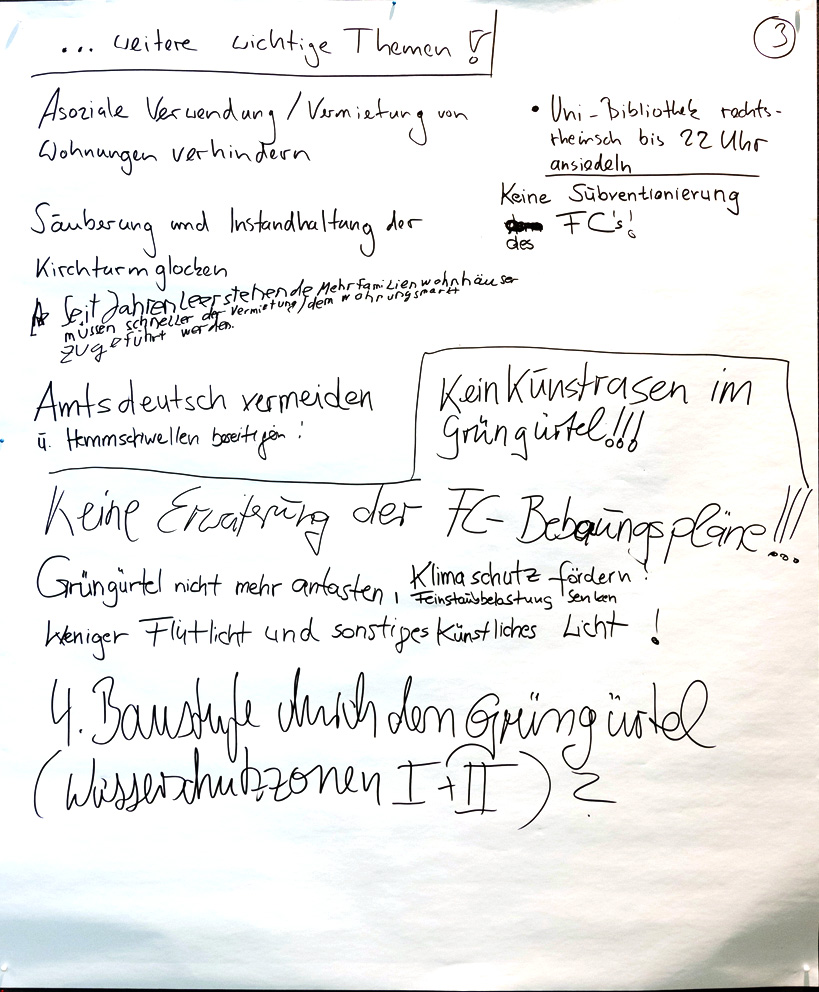 ... weitere wichtige Themen !
3
Asoziale Verwendung / Vermietung von
Wohnungen verhindern
• Uni-Bibliothek rechts-
rheinisch bis 22 Uhr
ansiedeln
Keine Subventionierung
des FC's!
Säuberung und Instandhaltung der
Kirchturmglocken
Seit Jahren leerstehende Mehrfamilienwohnhäuser
müssen schneller der Vermietung / dem Wohnungsmarkt
zugeführt werden.
Amtsdeutsch vermeiden
u. Hemmschwellen beseitigen!
Kein Kunstrasen im
Grüngürtel!!!
Keine Erweiterung der FC-Bebauungspläne!!!
Grüngürtel nicht mehr antasten, Klimaschutz fördern!
Feinstaubbelastung senken
Weniger Flutlicht und sonstiges Künstliches Licht !
4. Baustufe durch den Grüngürtel
(Wasserschutzzonen I + II) ?